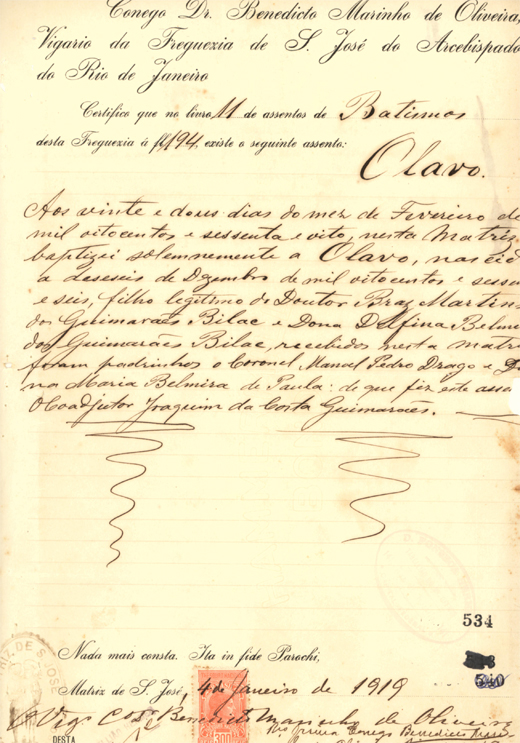 Conego Dr. Benedicto Marinho de Oliveira,
Vigario da Freguezia de S. José do Arcebispado
do Rio de Janeiro
Certifico que no livro 11 de assentos de Batismos
desta Freguezia á fl 194, existe o seguinte assento:
Olavo.
Aos vinte e dous dias do mez de Fevereiro de
mil oitocentos e sessenta e oito, nesta Matriz
baptizei solemnemente a Olavo, nascid
a deseseis de Dezembro de mil oitocentos e sessen
e seis, filho legitimo do Doutor Braz Martins
dos Guimarães Bilac e Dona Delfina Belmi
dos Guimarães Bilac, recebidos nesta matri
foram padrinhos o Coronel Manoel Pedro Drago e D
na Maria Belmira de Paula: de que fiz este asse
O Coadjutor Joaquim da Costa Guimarães.
534
540
Nada mais consta. Ita in fide Parochi,
Matriz de S. José, 4 de Janeiro de 1919
O Vigº Benedicto Marinho de Oliveira
RIZ DE S. JOSÉ
300
DESTA
Conego Benedicto